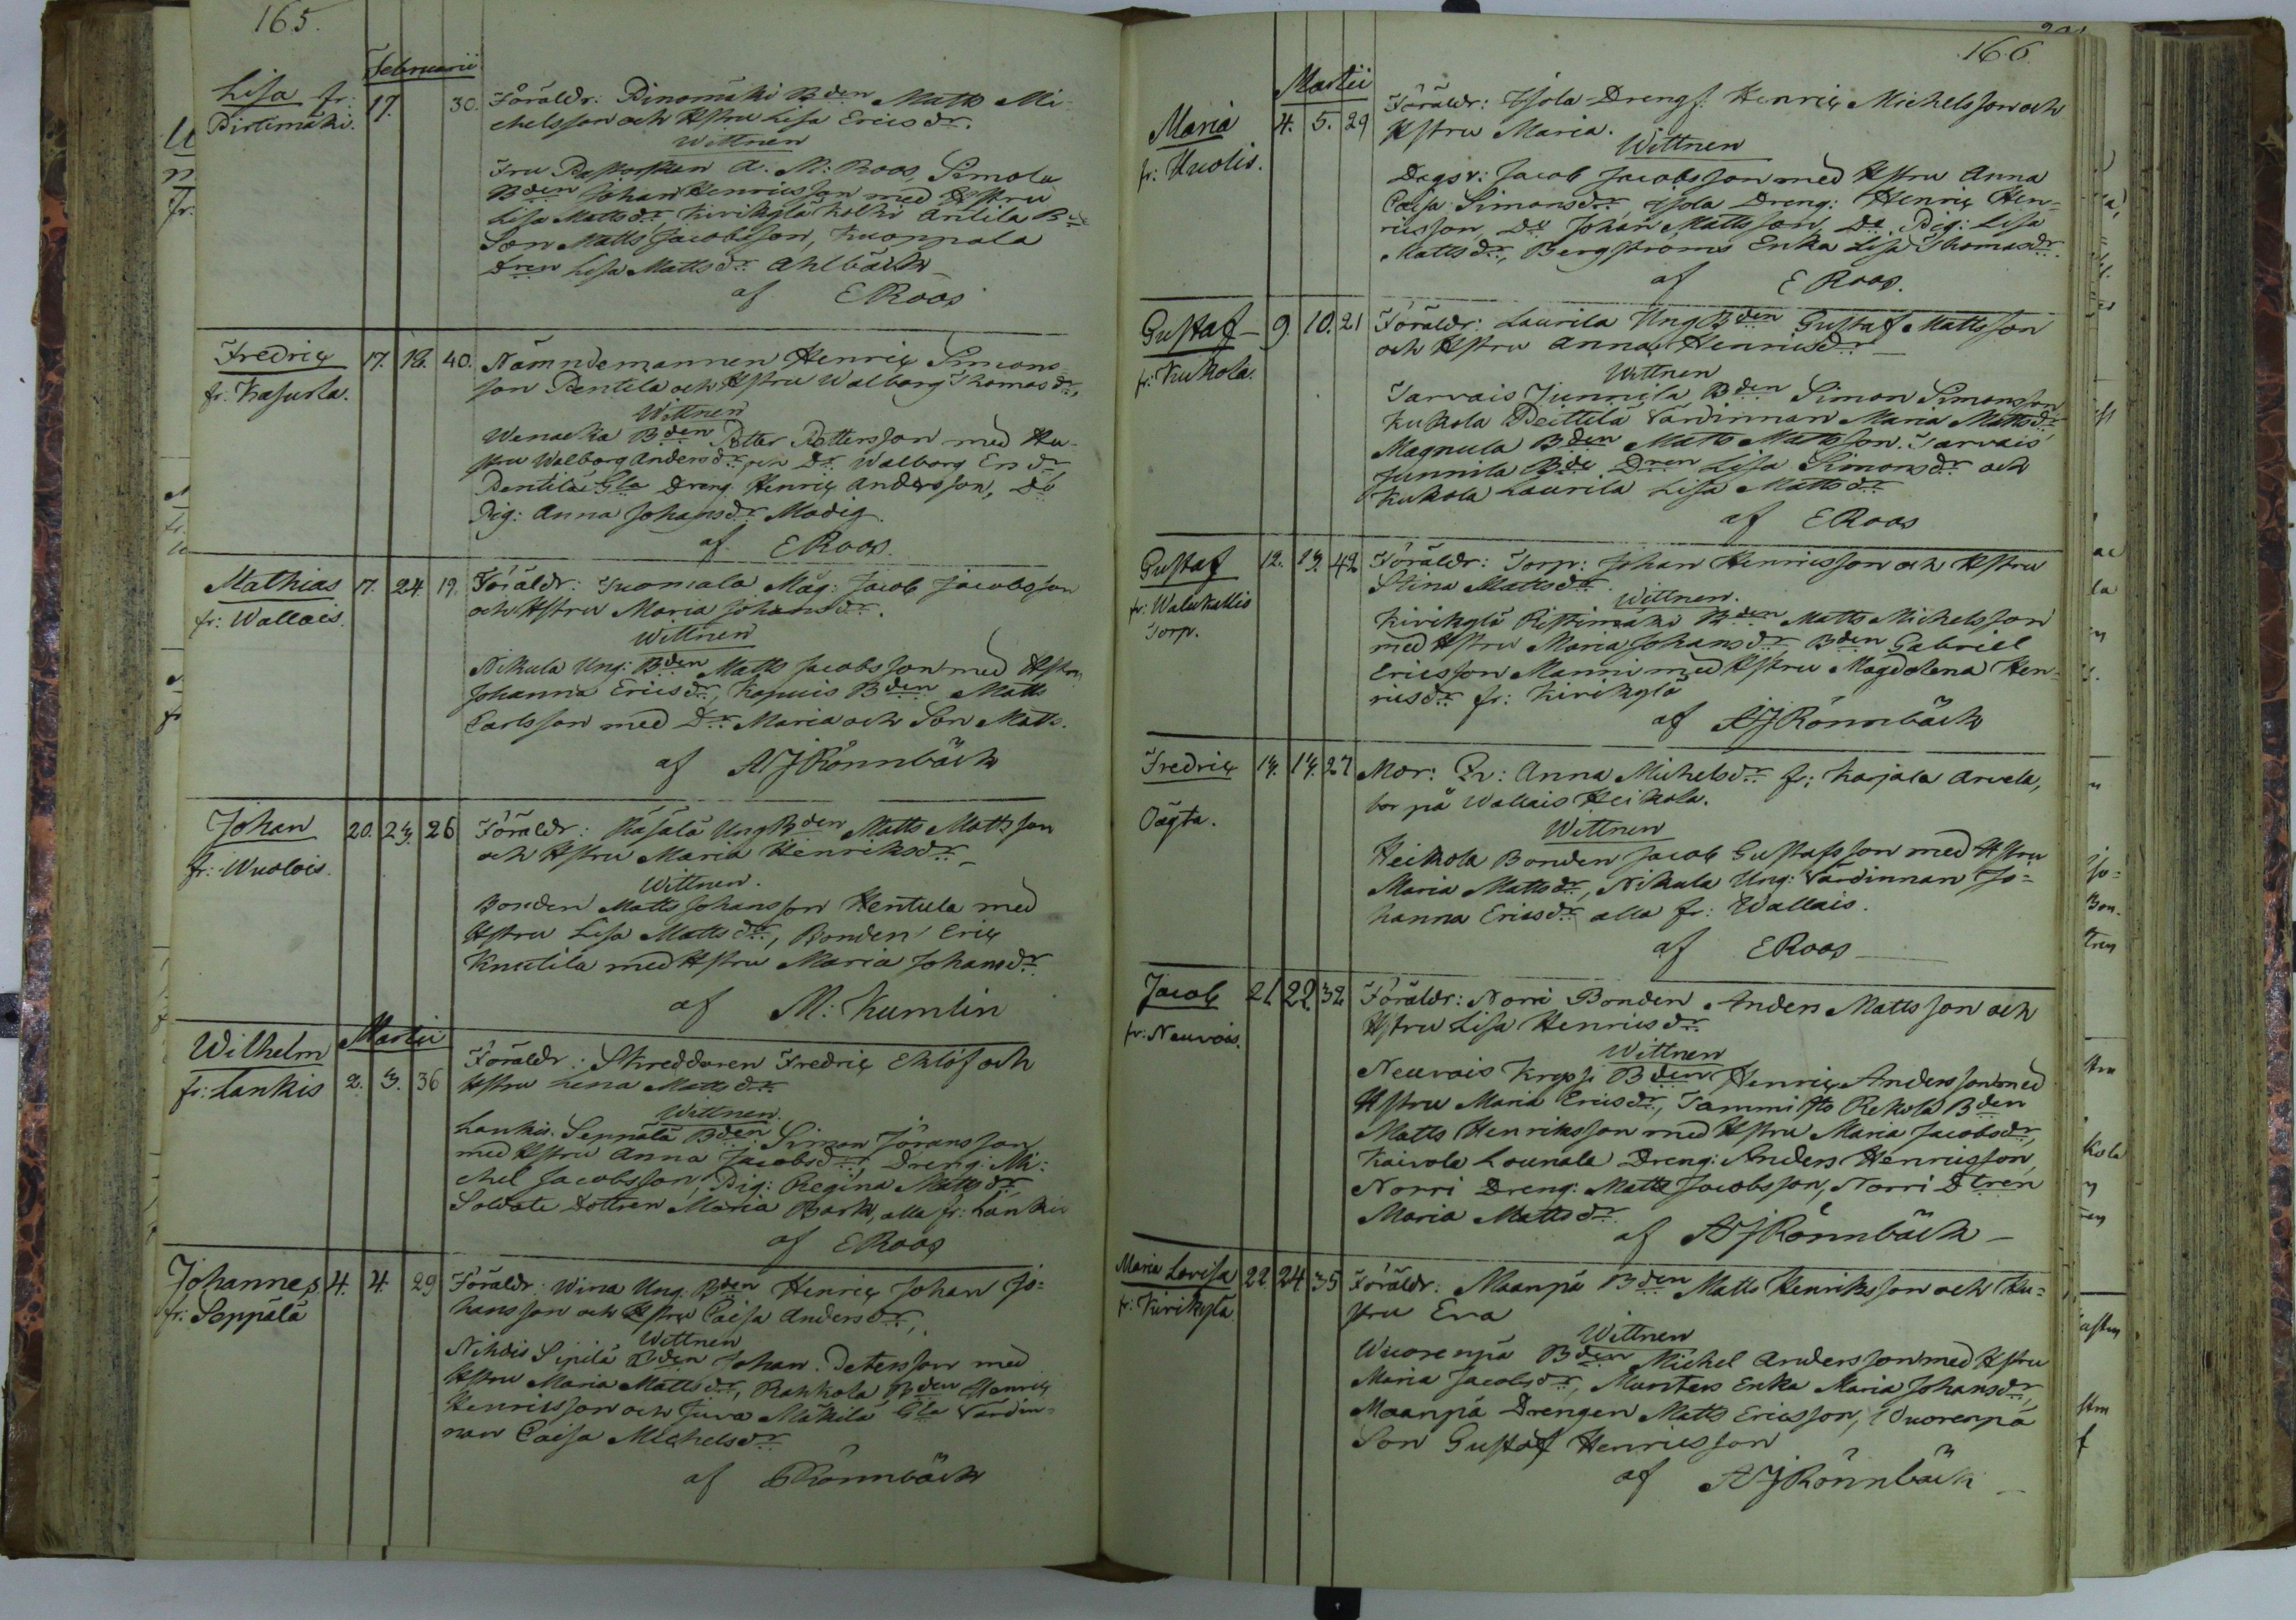 165.
Februarii
Lisa fr: 17. 30. Föräldr: Pinomäki Bden Matts Mi-
Pirtimäki. chelsson och Hstru Lisa Ericsdr.
Wittnen
Fru Pastorskan A. M: Roos, Simola
Bden Johan Henricsson med Hstru
Lisa Mattsdr, Kirikylä Kolki Antila Bde
Son Matts Jacobsson, Kuoppala
Dren Lisa Mattsdr Ahlbäck
af E Roos
Fredric 17. 18. 40. Nämndemannen Henric Simons-
fr. Kasurla. son Pentilä och Hstru Walborg Thomasdr,
Wittnen
Wenaeka Bden Petter Pettersson med Hu-
stru Walborg Andersdr och Dr Walborg Ersdr,
Pentilä Gla Dreng Henric Andersson, Do
Pig: Anna Johansdr Modig.
af E Roos
Mathias 17. 24 19. Föräldr: Tuomala Måg: Jacob Jacobsson
fr: Wallais. och Hstru Maria Johansdr.
Wittnen
Nikula Ung: Bden Matts Jacobsson med Hstru
Johanna Ericsdr, Kapuis Bden Matts
Carlsson med Dr Maria och Son Matts.
af A J Rönnbäck
Johan 20. 23. 26 Föräldr: Räsälä Ung Bden Matts Mattsson
fr: Wuolois. och Hstru Maria Henriksdr
Wittnen.
Bonden Matts Johansson Hentula med
Hstru Lisa Mattsdr, Bonden Eric
Knutila med Hstru Maria Johansdr
af M: Kumlin
Martii
Wilhelm Föräldr: Skreddaren Fredric Eklöf och
fr: Lankis 2. 3. 36 Hstru Lena Mattsdr
Wittnen
Lankis Seppälä Bden Simon Jöransson
med Hstru Anna Jacobsdr, Dreng: Mi-
chel Jacobsson, Pig: Regina Mattsdr,
Soldate Dottren Maria Bark, alla fr: Lankis
af E Roos
Johannes 4. 4. 29 Föräldr: Wina Ung: Bden Henric Johan Jo-
fr. Seppälä hansson och Hstru Caisa Andersdr,
Wittnen
Nihdis Sipilä Bden Johan Petersson med
Hstru Maria Mattsdr, Rahkola Bden Henric
Henricsson och Juva Mäkilä Gla Värdin-
nan Caisa Michelsdr
af Rönnbäck
166.
Martii
Maria 4. 5. 29 Föräldr: Isola Drengs. Henric Michelsson och
fr: Huolis. Hstru Maria.
Wittnen
Dagsv: Jacob Jacobsson med Hstru Anna
Caisa Simonsdr, Isola Dreng: Henric Hen-
ricsson, Do Johan Mattsson, Do Pig: Lisa
Mattsdr, Bergströms Enka Lisa Thomasdr.
af E Roos.
Gustaf 9. 10. 21 Föräldr: Laurila Ung Bden Gustaf Mattsson
fr: Kukola. och Hstru Anna Henricsdr
Wittnen
Sarvais Junnila Bden Simon Simonsson
Kukola Peittilä Värdinnan Maria Mattsdr
Magnula Bden Matts Mattsson. Sarvais
Junnila Bde Dren Lisa Simonsdr och
Kukola Laurila Lisa Mattsdr
af E Roos
Gustaf 12. 13. 42 Föräldr: Torp: Johan Henricsson och Hstru
fr: Walukallis Stina Mattsdr
Torp. Wittnen.
Kirikylä Ristimäki Bden Matts Michelsson
med Hstru Maria Johansdr Bden Gabriel
Ericsson Manni med Hstru Magdalena Hen-
ricsdr fr: Kirikylä
af A J Rönnbäck
Fredric 14. 14. 27 Mor: Anna Michelsdr fr: Karjala Arvela,
Oägta. bor på Wallais Heikola.
Wittnen
Heikola Bonden Jacob Gustafsson med Hstru
Maria Mattsdr, Nikula Ung: Värdinnan Jo-
hanna Ericsdr alla fr: Wallais.
af E Roos
Jacob 21 22 32 Föräldr: Norri Bonden Anders Mattsson och
fr: Neuvois. Hstru Lisa Henricsdr
Wittnen
Neuvois Kropsi Bden Henric Andersson med
Hstru Maria Ericsdr, Tammisto Rekola Bden
Matts Henriksson med Hstru Maria Jacobsdr,
Koivola Lounala Dreng: Anders Henricsson,
Norri Dreng: Matts Jacobsson, Norri Dtren
Maria Mattsdr.
af A J Rönnbäck
Maria Lovisa 22 24 35 Föräldr: Maanpä Bden Matts Henriksson och Hu-
fr: Kirikylä. stru Eva
Wittnen
Wuorenpä Bden Michel Andersson med Hstru
Maria Jacobsdr, Munters Enka Maria Johansdr,
Maanpä Drengen Matts Ericsson, Wuorenpä
Son Gustaf Henricsson
af A J Rönnbäck